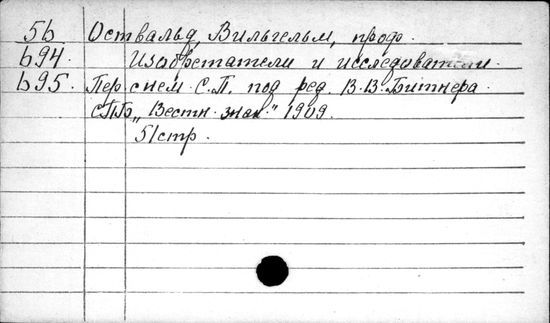 56 Оствальд, Вильгельм, проф.
694 Изобретатели и исследователи.
695. Пер. с нем. С.П. под ред. В.В. Битнера.
СПБ „Вестн. знан.“ 1909.
51 стр.